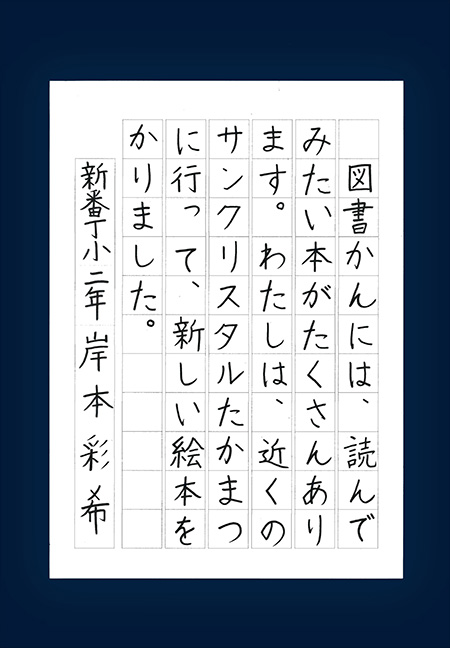 図書かんには、読んで
みたい本がたくさんあり
ます。わたしは、近くの
サンクリスタルたかまつ
に行って、新しい絵本を
かりました。
新番丁小二年岸本彩希